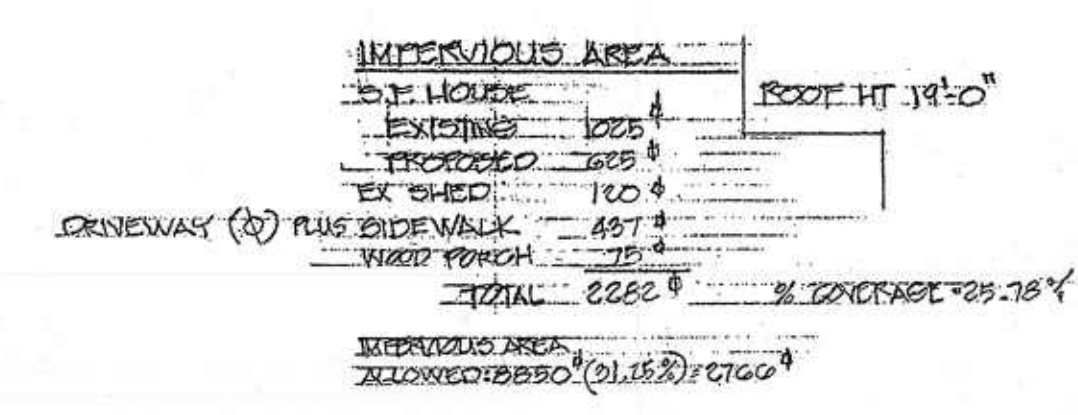 IMPERVIOUS AREA
ROOF HT 19'-0"
S.F. HOUSE
EXISTING 1025 ϕ
PROPOSED 625 ϕ
EX SHED 120 ϕ
DRIVEWAY (ϕ) PLUS SIDEWALK 437 ϕ
WOOD PORCH 75 ϕ
TOTAL 2282 ϕ % COVERAGE = 25.78%
IMPERVIOUS AREA
ALLOWED = 8850 ϕ (31.15%) = 2766 ϕ